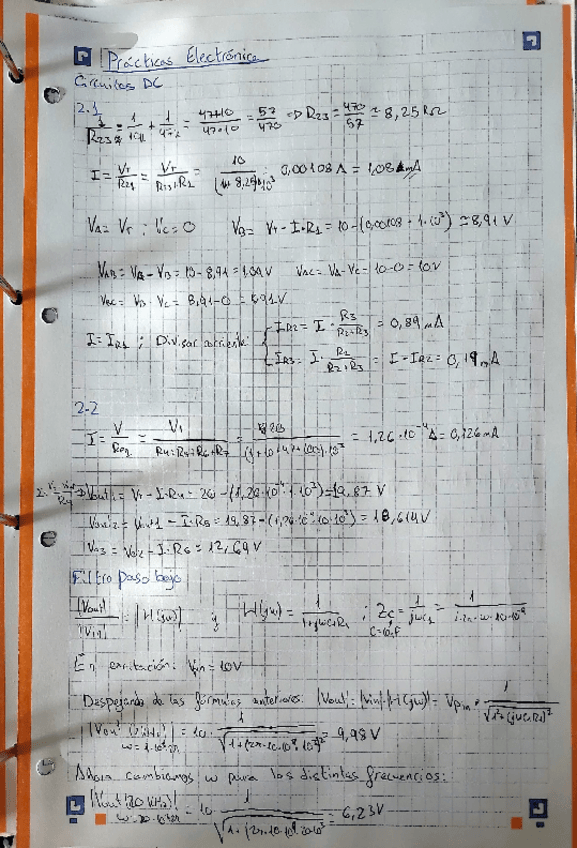 Prácticas Electrónica
Circuitos DC
2.1
1/R23 = 1/10 + 1/47 = 47+10/47·10 = 57/470 => R23 = 470/57 ≈ 8,25 kΩ
I = VT/Req = VT/R23+R1 = 10/(1+8,25)·10³ = 0,00108 A = 1,08 mA
VA = VT ; VC = 0 VB = VT - I·R1 = 10 - (0,00108 · 1·10³) ≈ 8,91 V
VAB = VA - VB = 10 - 8,91 = 1,09 V VAC = VA - VC = 10 - 0 = 10V
VBC = VB - VC = 8,91 - 0 = 8,91V
I = IR1 ; Divisor corriente: IR2 = I · R3/R2+R3 = 0,89 mA
IR3 = I · R2/R2+R3 = I - IR2 = 0,19 mA
2.2
I = V/Req = V1/R4+R5+R6+R7 = 20/(1+10+47+100)·10³ = 1,26·10⁻⁴ A = 0,126 mA
Vout1 = V1 - I·R4 = 20 - (1,26·10⁻⁴·1·10³) = 19,87 V
Vout2 = Vout1 - I·R5 = 19,87 - (1,26·10⁻⁴·10·10³) = 18,614 V
Vo3 = Vo2 - I·R6 = 12,69 V
Filtro paso bajo
|Vout|/|Vin| = |H(jω)| ; H(jω) = 1/1+jωC1R1 ; Zc = 1/jωC1
En excitación: Vin = 10V
Despejando de las fórmulas anteriores: |Vout| = |Vin|·|H(jω)|
= 9,98 V
Ahora cambiamos ω para las distintas frecuencias:
= 6,23 V